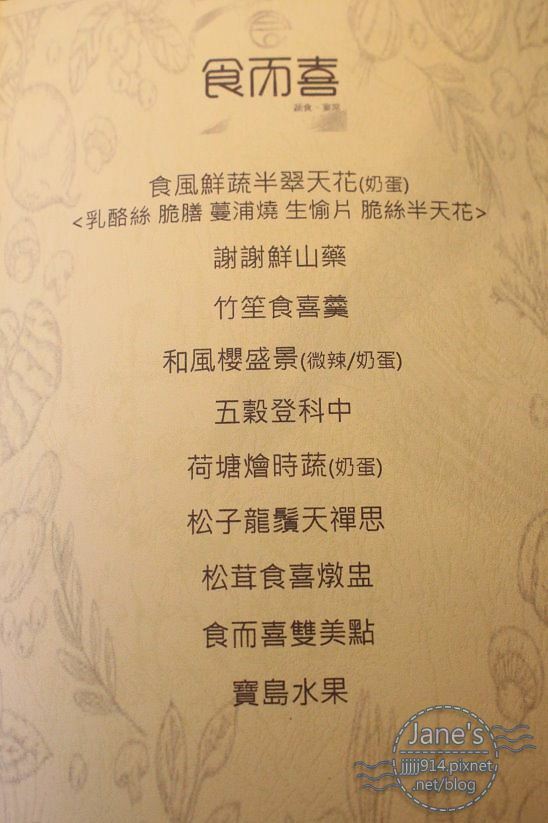 食而喜
蔬食．宴席
食風鮮蔬半翠天花(奶蛋)
<乳酪絲 脆膳 蔓浦燒 生愉片 脆絲半天花>
謝謝鮮山藥
竹笙食喜羹
和風櫻盛景(微辣/奶蛋)
五穀登科中
荷塘燴時蔬(奶蛋)
松子龍鬚天禪思
松茸食喜燉盅
食而喜雙美點
寶島水果
Jane's
jjjjj914.pixnet
.net/blog